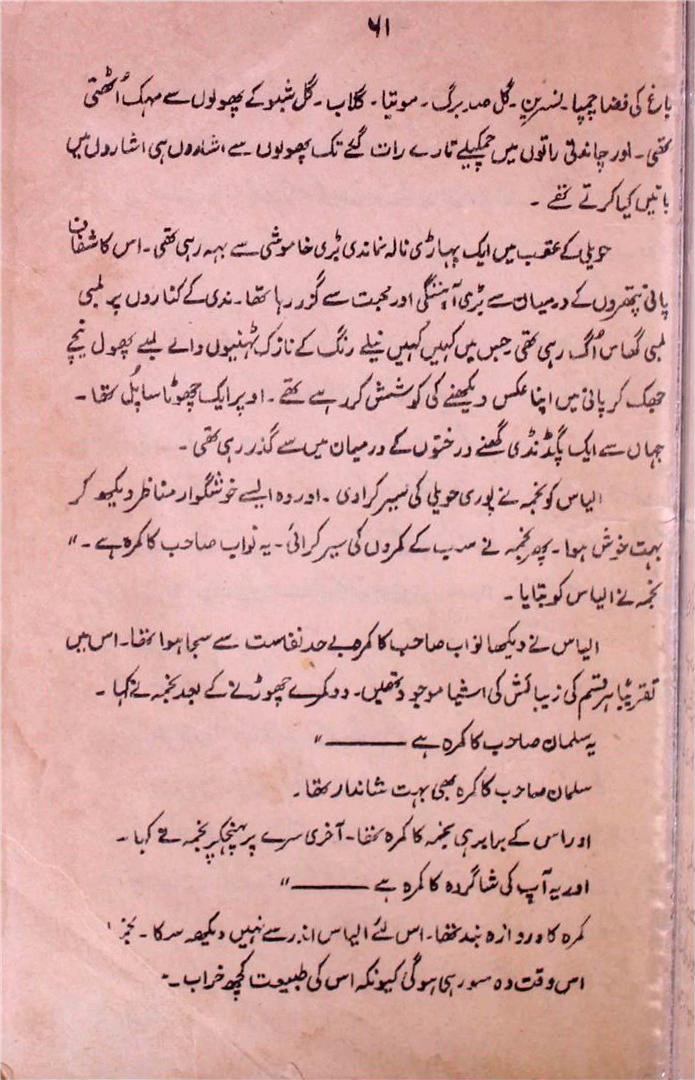 ۶۱
باغ کی فضا چمپا۔ نسرین۔ گل صد برگ۔ موتیا۔ گلاب۔ گل شبو کے پھولوں سے مہک اُٹھتی
تھی۔ اور چاندنی راتوں میں چمکیلے تارے رات گئے تک پھولوں سے اشاروں ہی اشاروں میں
باتیں کیا کرتے تھے۔
حویلی کے عقب میں ایک پہاڑی نالہ نما ندی بڑی خاموشی سے بہہ رہی تھی۔ اس کا شفاف
پانی پتھروں کے درمیان سے بڑی آہستگی اور محبت سے گزر رہا تھا۔ ندی کے کناروں پر لمبی
لمبی گھاس اُگ رہی تھی جس میں کہیں کہیں نیلے رنگ کے نازک ٹہنیوں والے لمبے پھول نیچے
جھک کر پانی میں اپنا عکس دیکھنے کی کوشش کر رہے تھے۔ اوپر ایک چھوٹا سا پل تھا۔
جہاں سے ایک پگڈنڈی گھنے درختوں کے درمیان میں سے گذر رہی تھی۔
الیاس کو نجمہ نے پوری حویلی کی سیر کرا دی۔ اور وہ ایسے خوشگوار مناظر دیکھ کر
بہت خوش ہوا۔ پھر نجمہ نے سب کے کمروں کی سیر کرائی۔ یہ نواب صاحب کا کمرہ ہے۔"
نجمہ نے الیاس کو بتایا۔
الیاس نے دیکھا نواب صاحب کا کمرہ بے حد نفاست سے سجا ہوا تھا۔ اس میں
تقریباً ہر قسم کی زیبائش کی اشیا موجود تھیں۔ دو کمرے چھوڑنے کے بعد نجمہ نے کہا۔
یہ سلمان صاحب کا کمرہ ہے ——— "
سلمان صاحب کا کمرہ بھی بہت شاندار تھا۔
اور اس کے برابر ہی نجمہ کا کمرہ تھا۔ آخری سرے پر پہنچکر نجمہ نے کہا۔
اور یہ آپ کی شاگردہ کا کمرہ ہے ——— "
کمرہ کا دروازہ بند تھا۔ اس لئے الیاس اندر سے نہیں دیکھ سکا۔
اس وقت وہ سو رہی ہوگی کیونکہ اس کی طبیعت کچھ خراب ۔